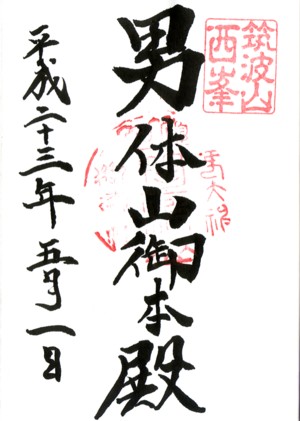 筑波山
西峯
男体山御本殿
平成二十三年五月一日